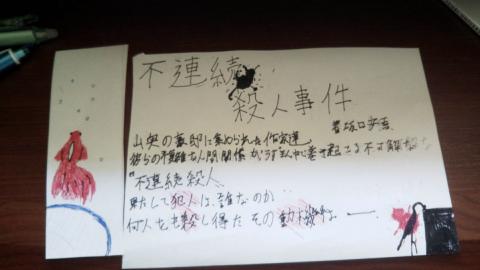 不連続
殺人事件
著 坂口安吾
山奥の豪邸に集められた作家達
彼らの不可解な人間関係がうずまく中巻き起こる不可解な
"不連続殺人"
果たして犯人は、誰なのか…
何人をも殺し得たその動機は――